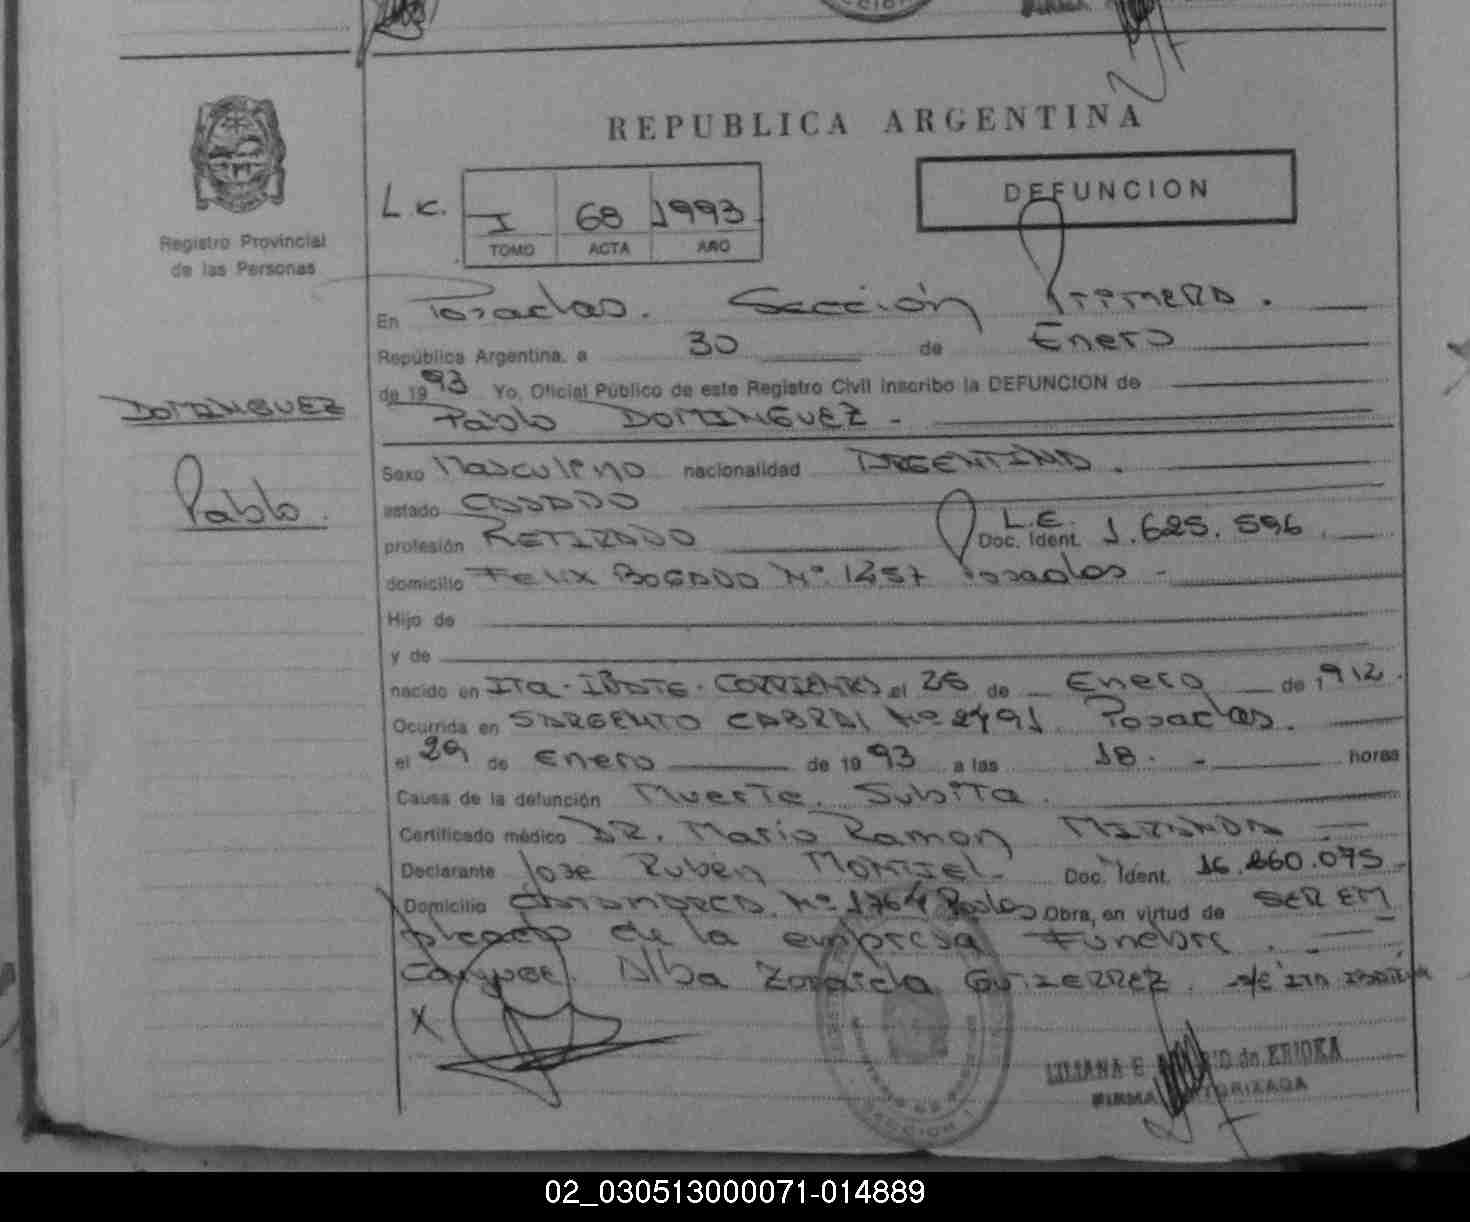 REPUBLICA ARGENTINA
DEFUNCION
L.C. I 68 1993
TOMO ACTA AÑO
Registro Provincial
de las Personas
DOMINGUEZ
Pablo.
En Posadas. Sección Primera.
República Argentina, a 30 de Enero
de 1993 Yo, Oficial Público de este Registro Civil inscribo la DEFUNCION de
Pablo DOMINGUEZ -
Sexo Masculino nacionalidad ARGENTINA.
estado CASADO
profesión RETIRADO L.E. Doc. Ident. 1.625.596
domicilio FELIX BOGADO Nº 1257 Posadas -
Hijo de
y de
nacido en ITA-IBATE-CORRIENTES el 26 de Enero de 1912.
Ocurrida en SARGENTO CABRAL Nº 2491 Posadas.
el 29 de Enero de 1993 a las 18. - horas
Causa de la defunción Muerte Subita.
Certificado médico DR. Mario Ramon MIRANDA
Declarante Jose Ruben MONTIEL- Doc. Ident. 16.260.075-
Domicilio Nº 1764 Posadas Obra, en virtud de SER EM
pleado de la empresa Funebre.
Alba Zoraida GUTIERREZ.
X
LILIANA E de KRIDKA
FIRMA AUTORIZADA
SECCION 1
02_030513000071-014889